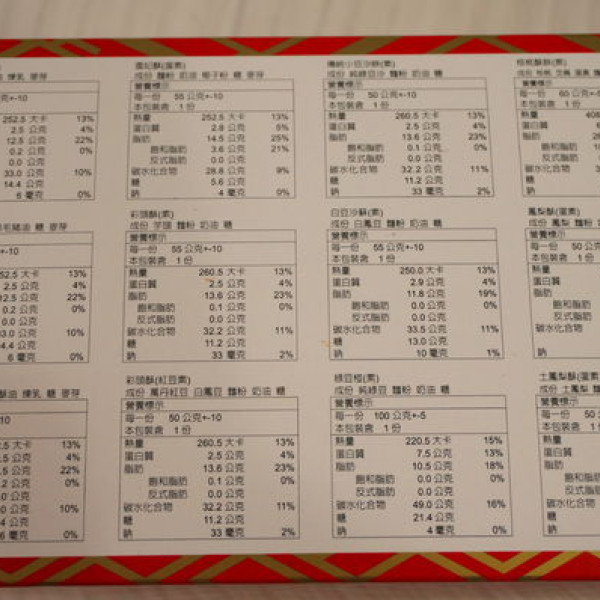 煉乳 麥芽
252.5 大卡 13%
2.5 公克 4%
12.5 公克 22%
0.2 公克 0%
0.0 公克
33.0 公克 10%
14.4 公克
6 毫克 0%
蛋素)
成份 麵粉 奶油 椰子粉 糖 麥芽
營養標示
每一份 55 公克+-10
本包裝含 1 份
熱量 252.5 大卡 13%
蛋白質 2.8 公克 5%
脂肪 14.5 公克 25%
飽和脂肪 3.6 公克 21%
反式脂肪 0.0 公克
碳水化合物 28.8 公克 9%
糖 5.6 公克
鈉 4 毫克 0%
傳統小豆沙餅(素)
成份 純綠豆沙 麵粉 奶油 糖
營養標示
每一份 50 公克+-10
本包裝含 1 份
熱量 260.5 大卡 13%
蛋白質 2.5 公克 4%
脂肪 13.6 公克 23%
飽和脂肪 0.2 公克 0%
反式脂肪 0.0 公克
碳水化合物 32.2 公克 11%
糖 11.2 公克
鈉 33 毫克 2%
營養標示
每一份 60 公克+-10
本包裝含 1 份
熱量
蛋白質
脂肪
飽和脂肪
反式脂肪
碳水化合物
糖
鈉
豬油 糖 麥芽
52.5 大卡 13%
2.5 公克 4%
12.5 公克 22%
0.2 公克 0%
0.0 公克
33.0 公克 10%
4.4 公克
6 毫克 0%
彩頭酥(素)
成份 芋頭 麵粉 奶油 糖
營養標示
每一份 55 公克+-10
本包裝含 1 份
熱量 260.5 大卡 13%
蛋白質 2.5 公克 4%
脂肪 13.6 公克 23%
飽和脂肪 0.1 公克 0%
反式脂肪 0.0 公克
碳水化合物 32.2 公克 11%
糖 11.2 公克
鈉 33 毫克 2%
白豆沙酥(素)
成份 白鳳豆 麵粉 奶油 糖
營養標示
每一份 55 公克+-10
本包裝含 1 份
熱量 250.0 大卡 13%
蛋白質 2.9 公克 4%
脂肪 11.8 公克 19%
飽和脂肪 0.0 公克 0%
反式脂肪 0.0 公克
碳水化合物 33.5 公克 11%
糖 13.0 公克
鈉 10 毫克 1%
鳳梨酥(蛋素)
成份 鳳梨 麵粉
營養標示
每一份 50 公克
本包裝含 1 份
熱量
蛋白質
脂肪
飽和脂肪
反式脂肪
碳水化合物
糖
鈉
油 煉乳 糖 麥芽
.5 大卡 13%
.5 公克 4%
.5 公克 22%
.2 公克 0%
.0 公克
.0 公克 10%
.4 公克
6 毫克 0%
彩頭酥(紅豆素)
成份 萬丹紅豆 白鳳豆 麵粉 奶油 糖
營養標示
每一份 50 公克+-10
本包裝含 1 份
熱量 260.5 大卡 13%
蛋白質 2.5 公克 4%
脂肪 13.6 公克 23%
飽和脂肪 0.1 公克 0%
反式脂肪 0.0 公克
碳水化合物 32.2 公克 11%
糖 11.2 公克
鈉 33 毫克 2%
綠豆椪(素)
成份 純綠豆 麵粉 奶油 糖
營養標示
每一份 100 公克+-5
本包裝含 1 份
熱量 220.5 大卡 15%
蛋白質 7.5 公克 13%
脂肪 10.5 公克 18%
飽和脂肪 0.0 公克 0%
反式脂肪 0.0 公克
碳水化合物 49.0 公克 16%
糖 21.4 公克
鈉 4 毫克 0%
土鳳梨酥(蛋素
成份 土鳳梨 麵
營養標示
每一份 50
本包裝含 1 份
熱量
蛋白質
脂肪
飽和脂肪
反式脂肪
碳水化合物
糖
鈉